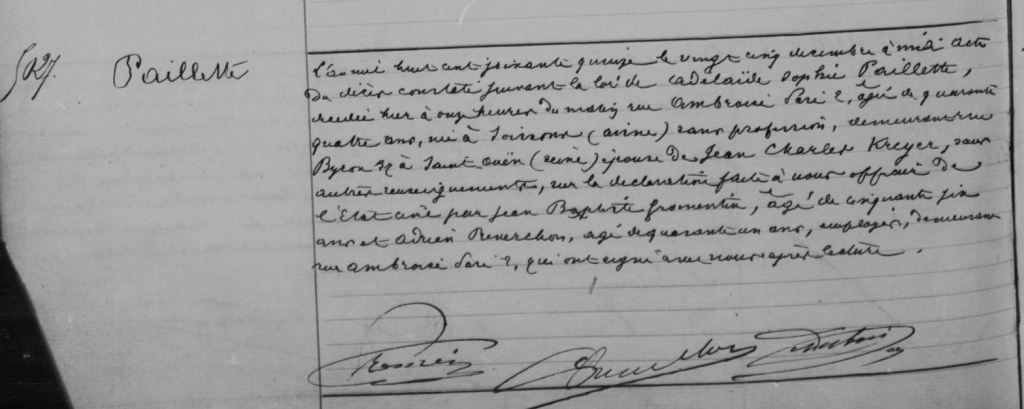 5127. Paillette
L'an mil huit cent soixante quinze le vingt cinq decembre à midi acte
du décès constaté suivant la loi de Adélaïde Sophie Paillette,
decedée hier à onze heures du matin rue Ambroise Paré 2, âgée de quarante
quatre ans, née à Soissons (aisne) sans profession, demeurant rue
Byron 37 à Saint Ouën (seine) épouse de Jean Charles Kreyer, sans
autres renseignements, sur la declaration faite à nous officier de
l'Etat civil par Jean Baptiste Fromentin, âgé de cinquante six
ans et Adrien Reverchon, agé de quarante un ans, employés, demeurant
rue Ambroise Paré 2, qui ont signé avec nous après lecture.